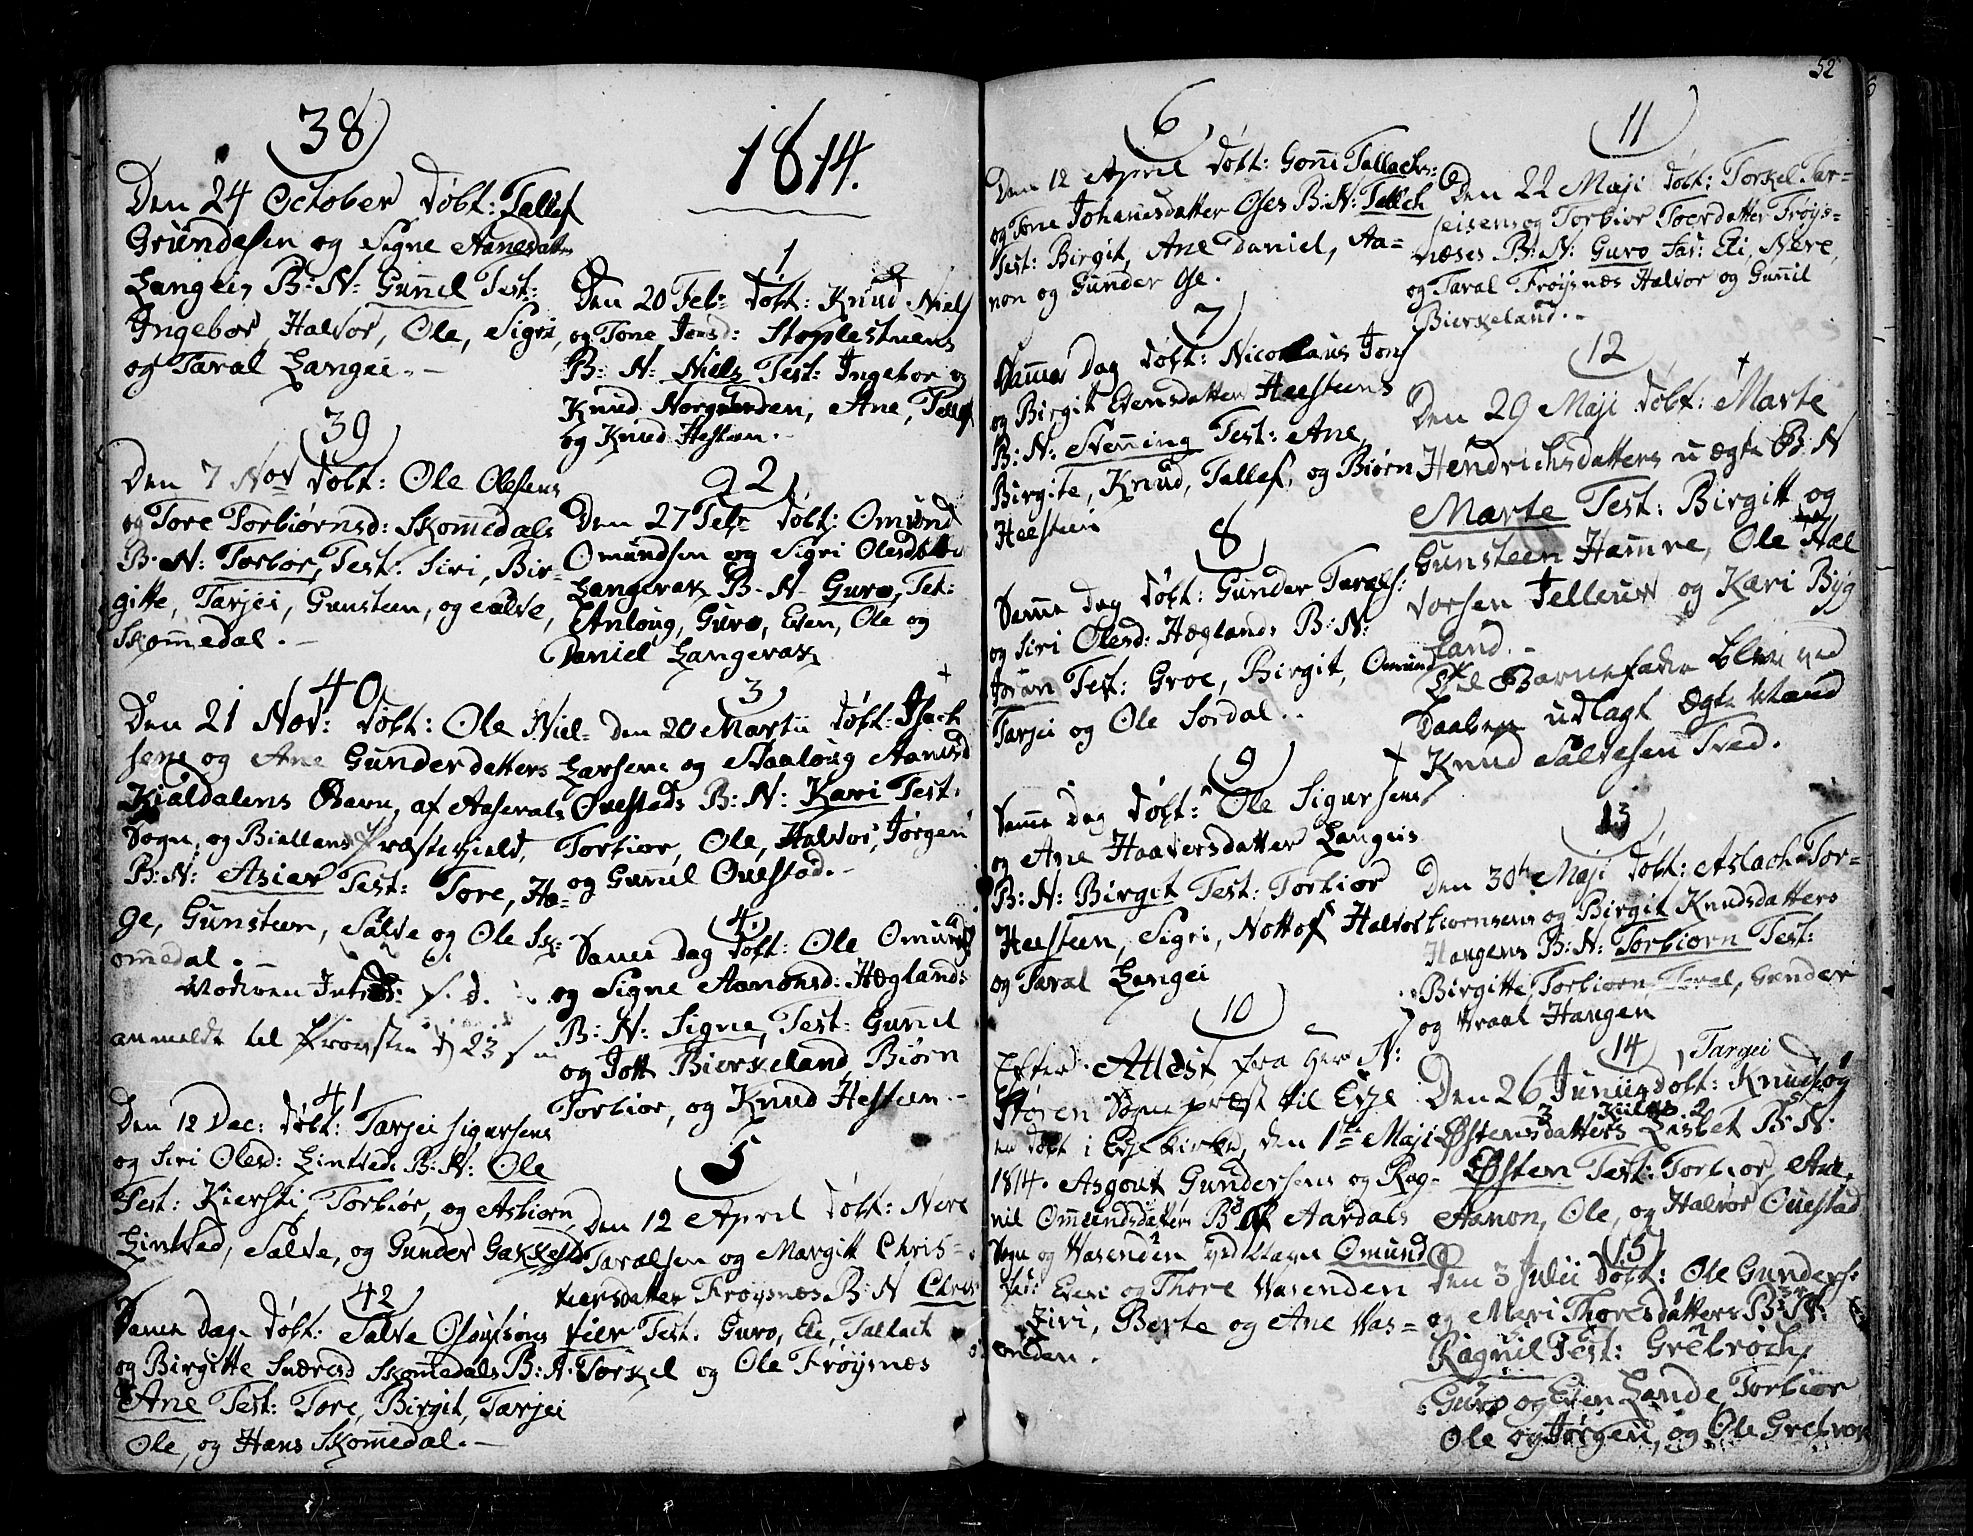 38
Den 24 October Døbt: Tallef
Grundesen og Signe Aanesdatter
Langeis B: N: Gunnel Test:
Ingebor, Halvor, Ole, Sigri,
og Taral Langei.
39
Den 7 Nov Døbt: Ole Olesens
og Tore Torbiørnsd: Skommedals
B: N: Torbor, Test: Siri, Bir-
gitte, Tarjei, Gunsteen, og Salve,
Skommedal.
40
Den 21 Nov: Døbt: Ole Niel-
sens og Ane Gunderdatters
Kialdalens Barn, af Aaserals
Sogn, og Biellands Præstegield,
B: N: Asier Test: Tore, Ha-
ge, Gunsteen, Salve og Ole Sk-
ommedal.
Moderen
anmeldt til Provsten d 23
41
Den 12 Dec: Døbt: Tarjei Sigursens
og Siri Olesd: Lintveds B: N: Ole
Test: Kiersti, Torbiør, og Asbiørn
Lintved, Salve, og Gunder
42
Samme Dag Døbt: Salve Olaufsøns
og Birgitte Sveresd Skommedals B: N:
Ane Test: Tore, Birgit, Tarjei
Ole, og Hans Skommedal.
1814.
1
Den 20 Febr Døbt: Knud Niels
og Tone Jensd: Stoplestuens
B: N: Niels Test: Ingebor og
Knud Norgaarden, Ane, Tellef
og Knud Hesteen.
2
Den 27 Febr Døbt: Omund
Omundsen og Sigri Olesdatter
Langerak B. N. Guro, Test:
Anloug, Guro, Even, Ole og
Daniel Langerak
3
den 20 Martii Døbt: Isach
Larsens og Aanesd
Ouestads B: N: Kari Test:
Torbior, Ole, Halvor, Jørgen
og Gunnil Ouestad.
4
Samme Dag Døbt: Ole Omunds
og Signe Aanonsd: Høglands
B: N: Signe, Test: Gunnil
og Jott Bierkeland, Biørn
Torbior, og Knud Hesteen.
5
Den 12 April Døbt: Nere
Taralsen og Margitt Chris-
tiersdatter Frøysnæs B: N Chris-
tier Test: Guro, Eli, Tallach
Torkel og Ole Frøysnæs
52
6
Den 12 April Døbt: Gonni Tallachs:
og Tone Johannesdatter Oses B: N: Tallch
Test: Birgit, Ane Daniel, Aa-
non og Gunder Ose.
7
Samme Dag Døbt: Nicolaus Jons
og Birgit Evensdatters Heesteens
B: N: Flemming Test: Ane,
Birgite, Knud, Tallef, og Biørn
Heesteen
8
Samme Dag Døbt: Gunder Tarals:
og Siri Olesd: Høglands B: N:
Joran Test: Groe, Birgit, Omund
Tarjei og Ole Sordal.
9
Samme Dag Døbt: Ole Sigursens
og Ane Haaversdatter Langeis
B: N: Birgit Test: Torbior
Heesteen, Sigri, Nottof Halvor
og Taral Langei
10
Efter Attest fra Her N:
Støren Sogne præst til Evje
er Døbt i Evje Kirke, den 1te Maji
1814. Asgout Gundersens og Rag-
nil Ommundsdatters B: af Aardals
Sogn og Vasenden ved Navn Omund
Fas: Even og Thore Vasenden
Siri, Berte og Ane Vas-
enden.
11
Den 22 Maji Døbt: Torkel Tar-
jeisens og Torbior Toerdatter Frøys-
næses B: N: Guro Fas: Eli, Nere,
og Taral Frøysnæs Halvor og Gunnil
Bierkeland.
12
Den 29 Maji Døbt: Marte
Hendrichsdatters u ægte B: N
Marte Test: Birgitt og
Gunsteen Hamre, Ole Hal
vorsen Jelleur og Kari Byg
land.
Til Barnefader blev ved
Daaben udlagt Ægte Mand
Knud Salvesen Tved.
13
Den 30te Maji Døbt: Aslach Tor-
biornsens og Birgit Knudsdatters
Haugens B: N: Torbiorn Test:
Birgitte, Torbiorn, Toral, Gunder
og Vraal Haugen
14
Tarjei
Den 26 Junii Døbt: Knuds og
Østensdatters Lisbet B: N:
Østen Test: Torbior, Ane,
Aanon, Ole, og Halvor Ouestad
15
Den 3 Julii Døbt: Ole Gunders:
og Meri Thoresdatters B: N:
Ragnil Test: Gretroch,
Guro og Even Lande, Torbior
Ole og Jørgen, og Ole Gretrok